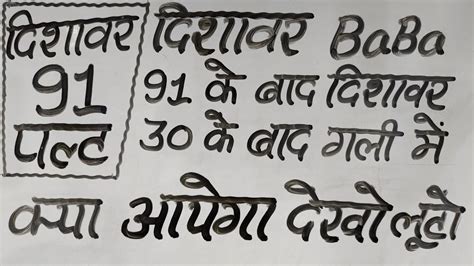 दिशावर
91
पल्ट
दिशावर BaBa
91 के बाद दिशावर
30 के बाद गली में
क्या आपेगा देखो लूटो